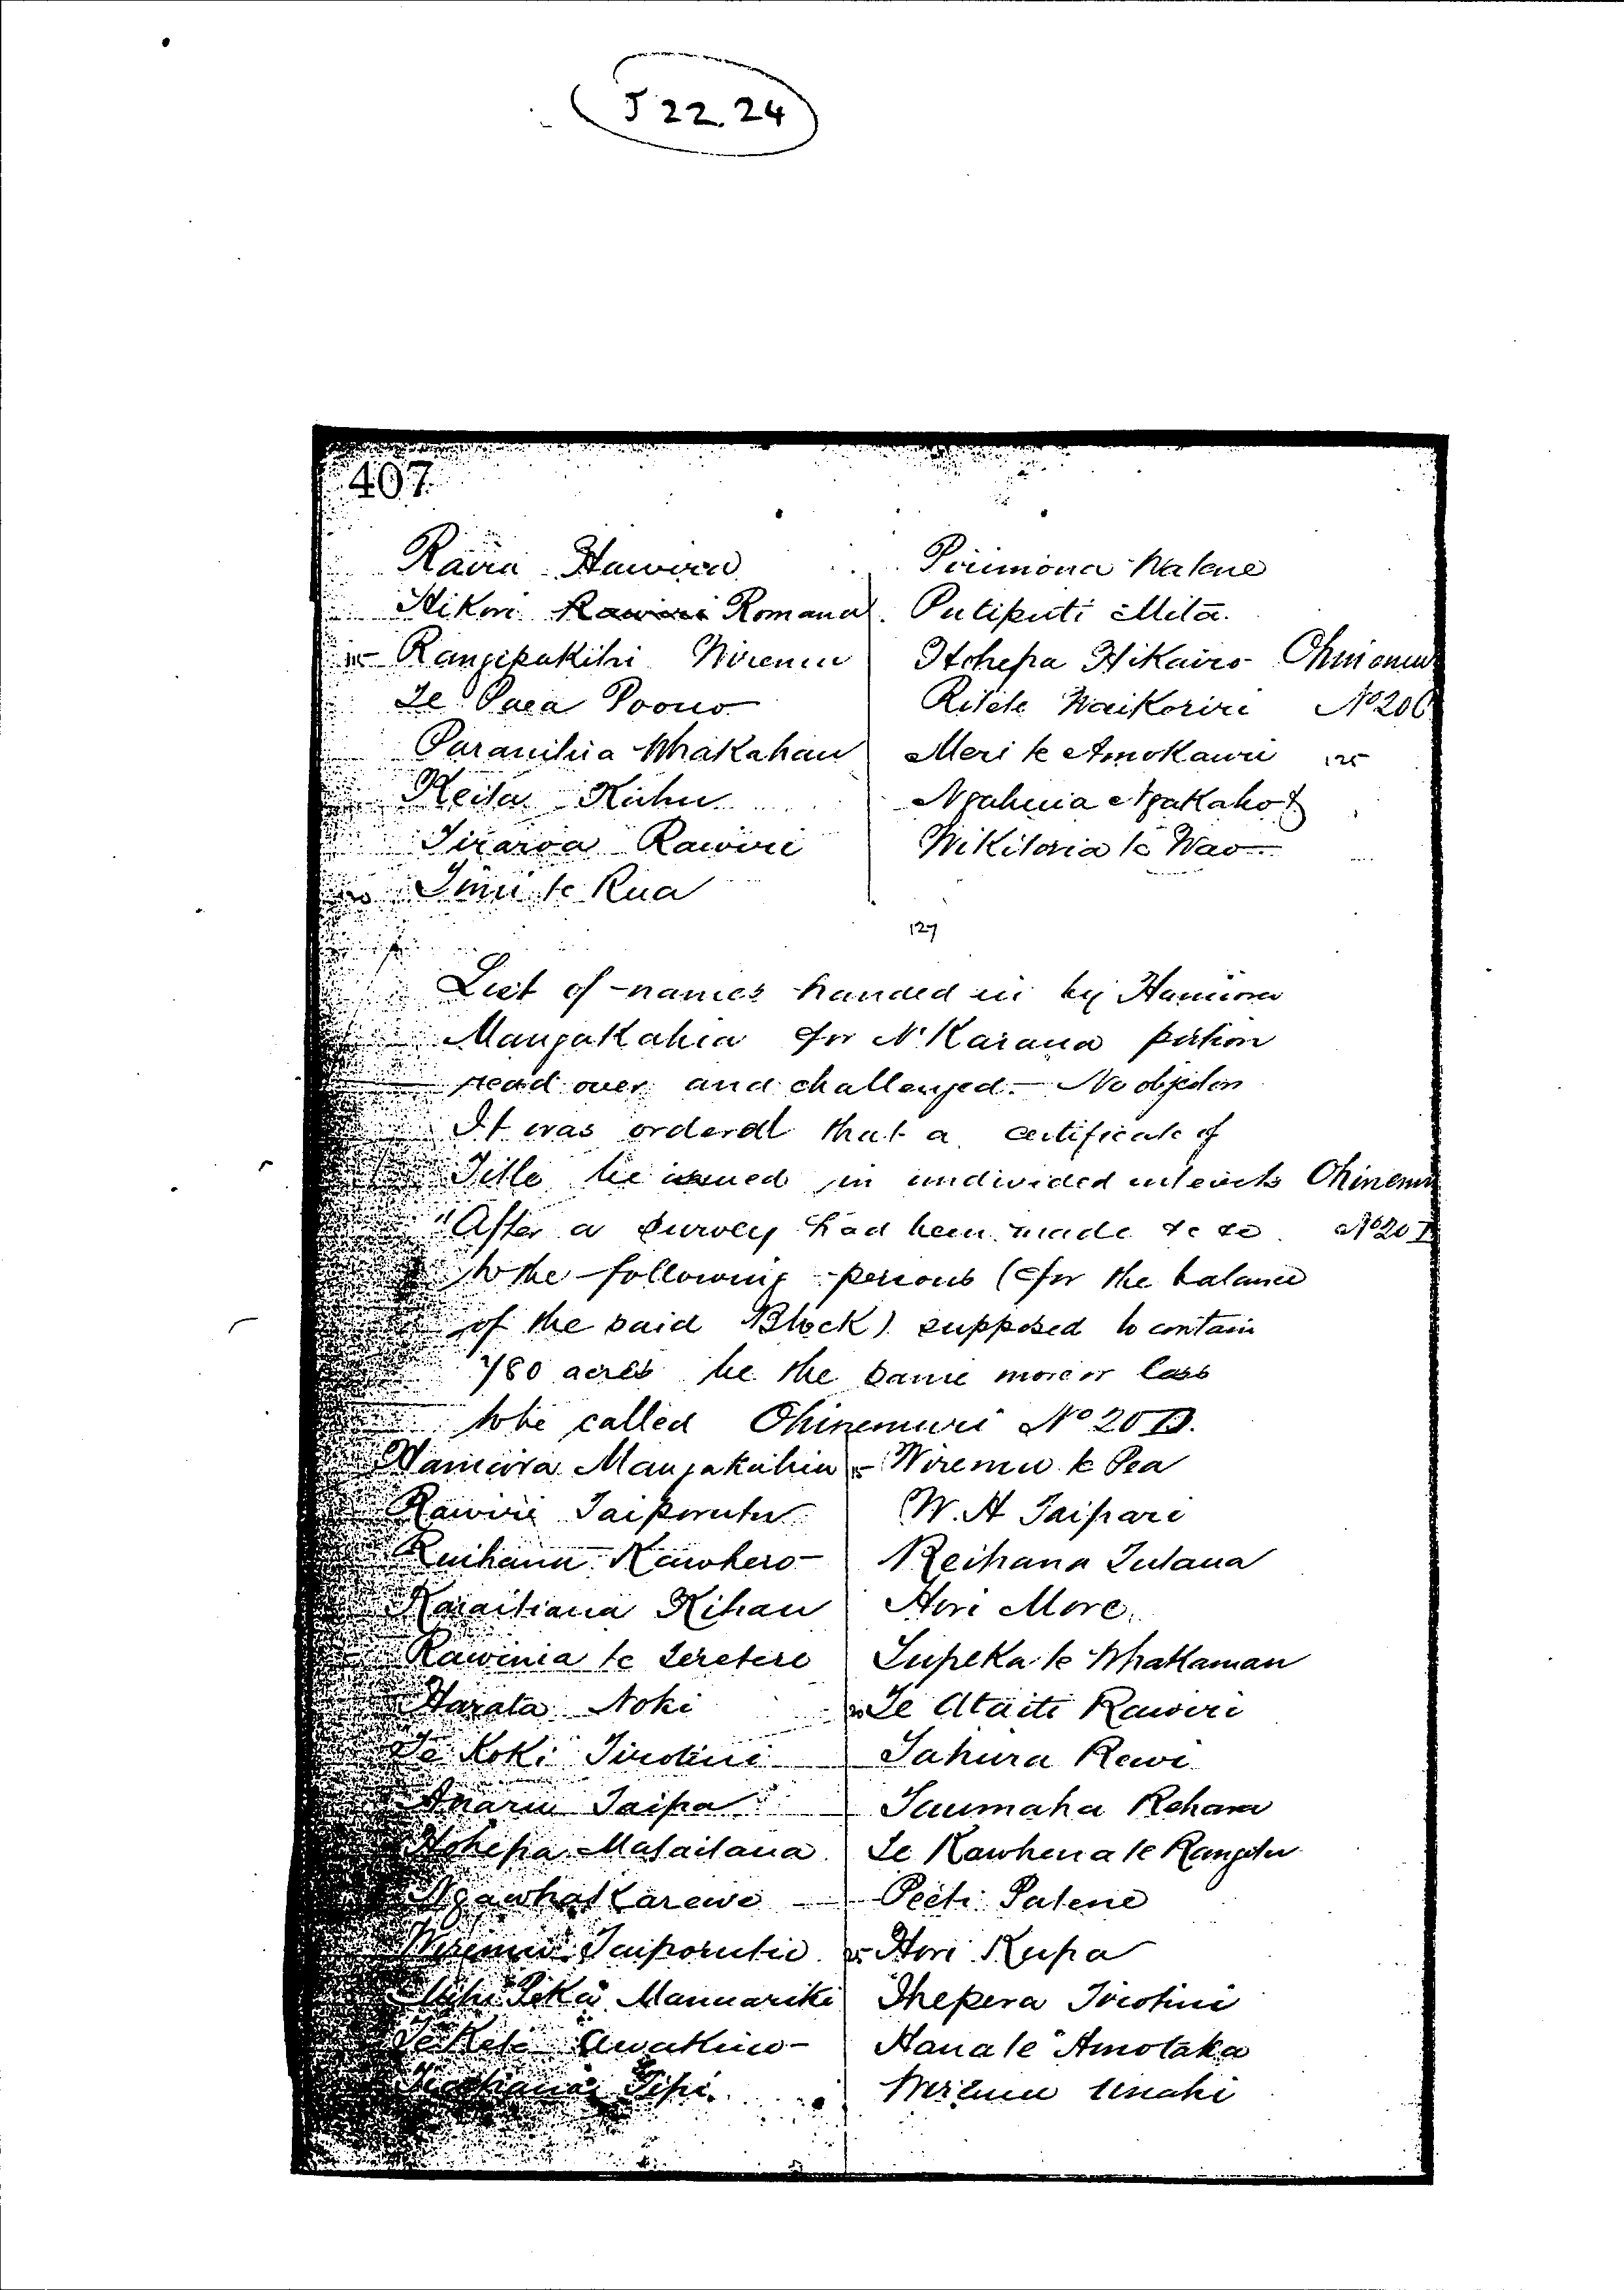 J 22.24
407
Raira Hawira Pirimona Watene
Hikori Rawiri Romana Putiputi Mita.
115 Rangipakihi Wiremu Hohepa Hikairo Ohinemu
Te Paea Poono Ritete Waikoriri No 20C
Paranihia Whakahau Meri te Amokawu 125
Keita Kuhu Ngahuia Ngakaho
Tiraroa Rawiri Wikitoria te Wao
120 te Rua
127
List of names handed in by Hamiora
Mangakahia for N' Karaua portion
read over and challenged. No objection
It was ordered that a certificate of
Title be issued in undivided interests Ohinemu
"After a survey had been made &c &c No 20 D
to the following persons (for the balance
of the said Block) supposed to contain
780 acres be the same more or less
to be called Ohinemuri No 20 D.
Hamiora Mangakahia 15 Wiremu te Pea
Rawiri Taiporutu W. H Taipari
Reihana Kawhero Reihana Tutaua
Karaitiana Kihau Hori More.
Rawinia te Teretere Tupeka te Whakamau
Harata Noki 20 Te Ataiti Rawiri
Te Koki Tirotini Tahura Rewi
Anaru Taipa Taumaha Rehana
Hohepa Mataitaua Te Kawhena te Rangitu
Ngawhakarewa Peeti Patene
Wiremu Taiporutu 25 Hori Kupa
Mihi Peka Manuariki Ihepera Tirotini
Te Keti Awakino Hana te Amotaka
Tipi. Wiremu Unahi